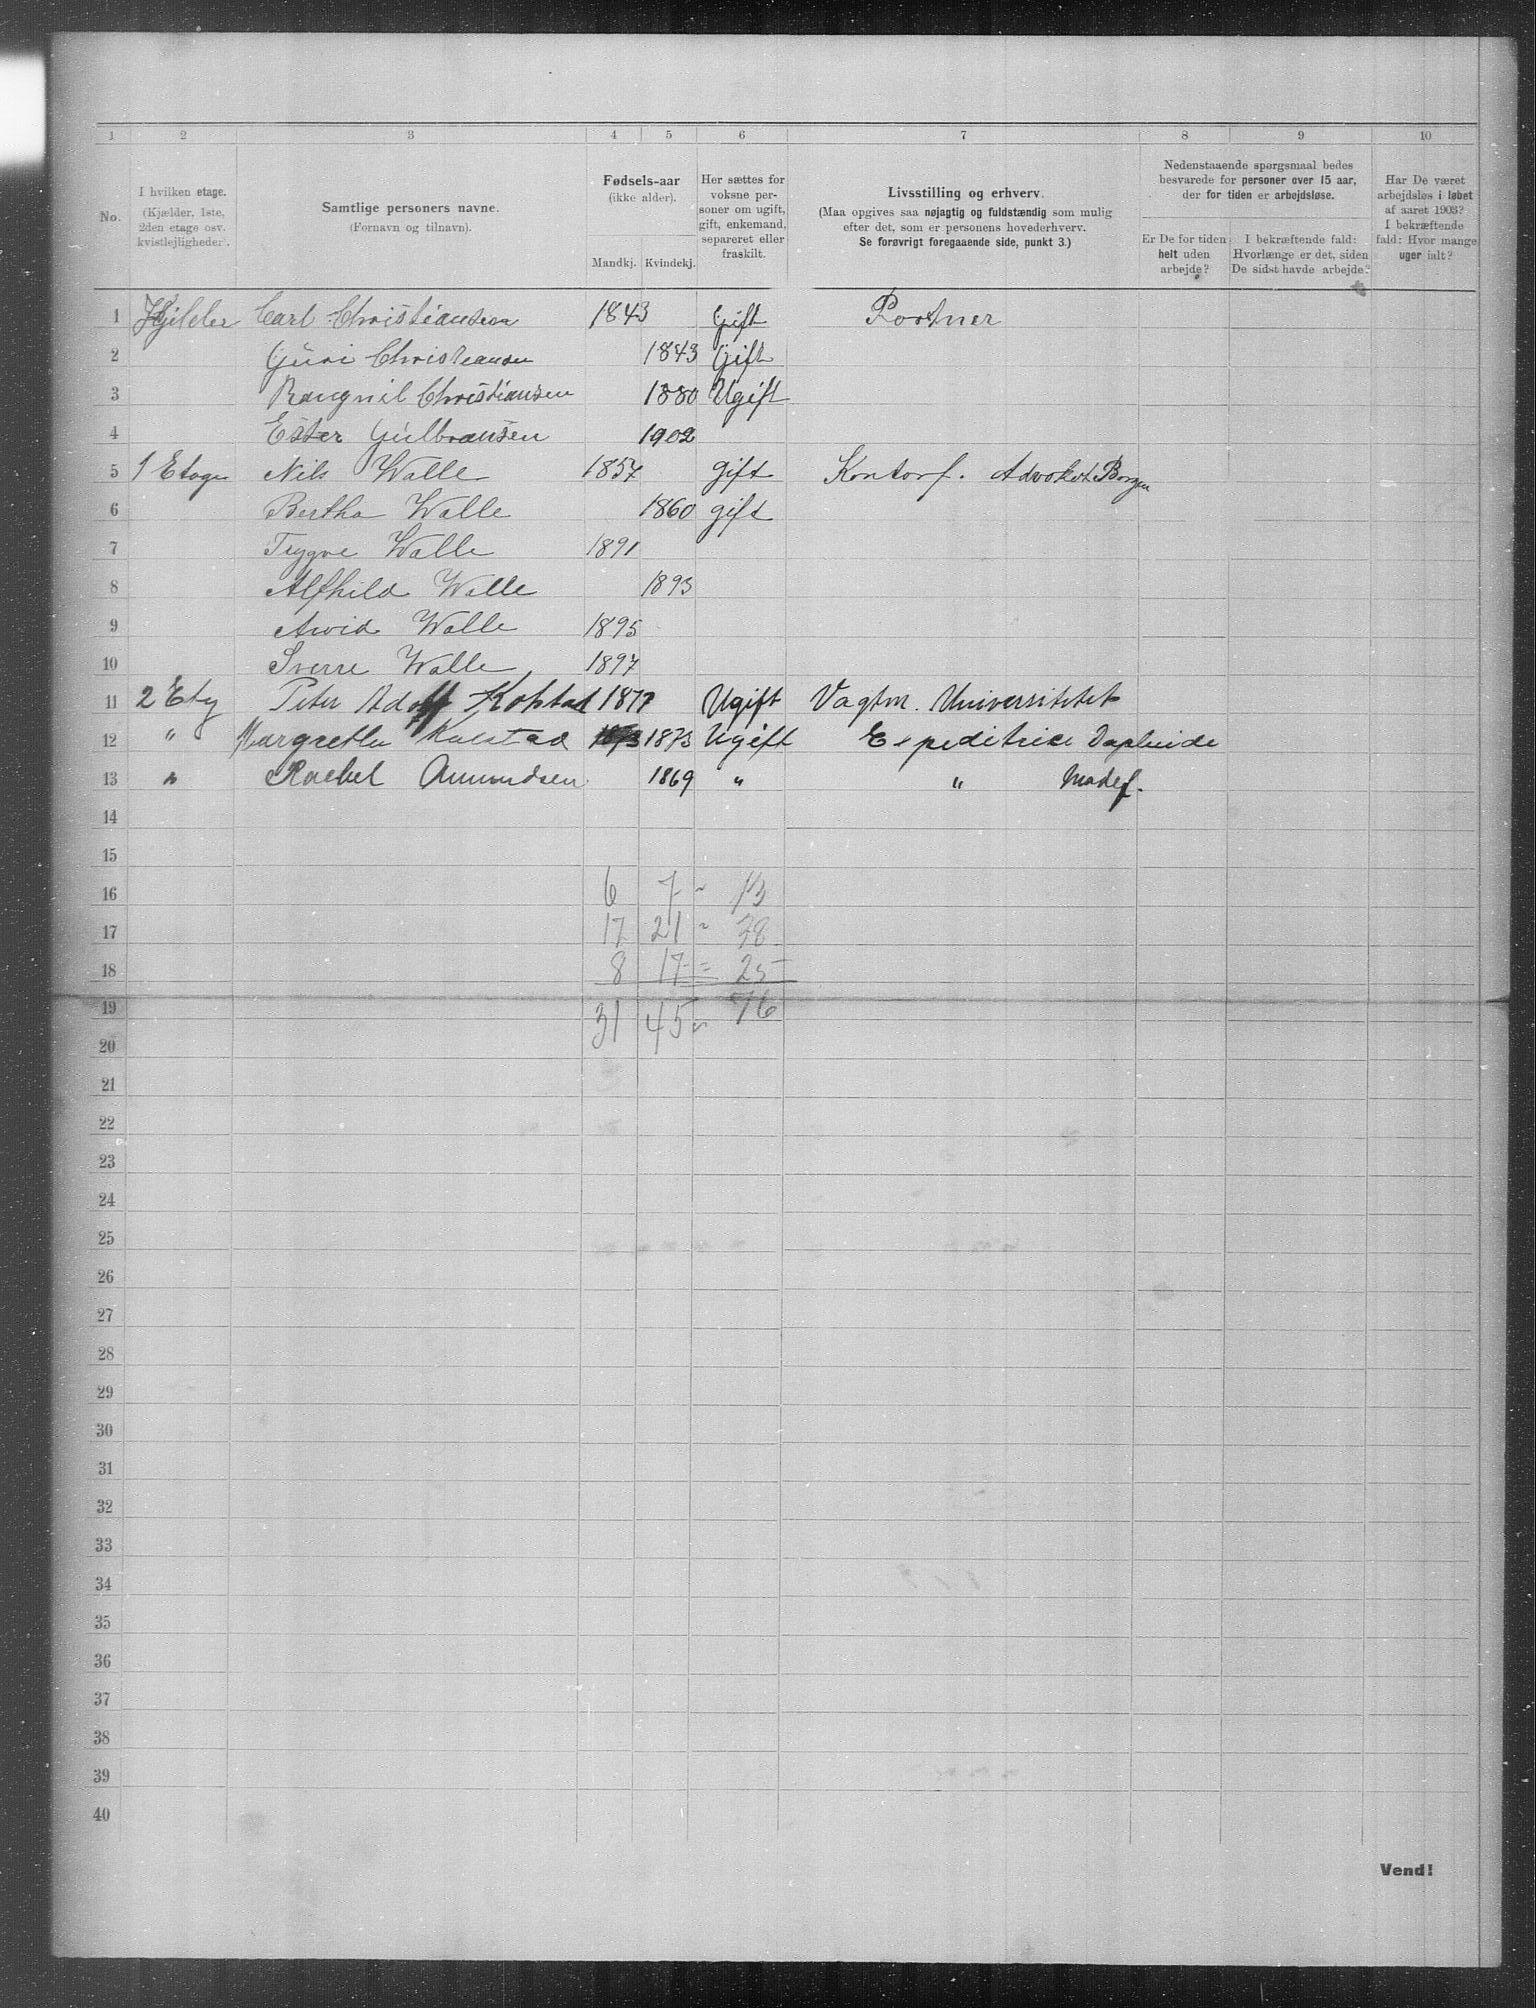 1 2 3 4 5 6 7 8 9 10
No.
I hvilken etage.
(Kjælder, 1ste,
2den etage osv.
kvistlejligheder).
Samtlige personers navne.
(Fornavn og tilnavn).
Fødsels-aar
(ikke alder).
Mandkj. Kvindekj.
Her sættes for
voksne per-
soner om ugift,
gift, enkemand,
separeret eller
fraskilt.
Livsstilling og erhverv.
(Maa opgives saa nøjagtig og fuldstændig som mulig
efter det, som er personens hovederhverv.
Se forøvrigt foregaaende side, punkt 3.)
Nedenstaaende spørgsmaal bedes
besvarede for personer over 15 aar,
der for tiden er arbejdsløse.
Er De for tiden
helt uden
arbejde?
I bekræftende fald:
Hvorlænge er det, siden
De sidst havde arbejde?
Har De været
arbejdsløs i løbet
af aaret 1903?
I bekræftende
fald: Hvor mange
uger ialt?
1 Carl Christiansen 1843 Gift Portner
2 Guri Christiansen 1843 Gift
3 Rangnil Christiansen 1880 Ugift
4 Ester Gulbransen 1902
5 1 Etage Nils Walle 1857 gift Kontorf. Advokat Borgen
6 Bertha Walle 1860 gift
7 Trygve Walle 1891
8 Alfhild Walle 1893
9 Arvid Walle 1895
10 Sverre Walle 1897
11 2 Etg Peter Adolf Kolstad 1877 Ugift Vagtm. Universitetet
12 " Margrethe Kolstad 1873 Ugift Expeditrice
13 " Rachel Amundsen 1869 " "
14
15
16 6 7 - 13
17 17 21 - 38
18 8 17 = 25
19 31 45 = 76
20
21
22
23
24
25
26
27
28
29
30
31
32
33
34
35
36
37
38
39
40
Vend!